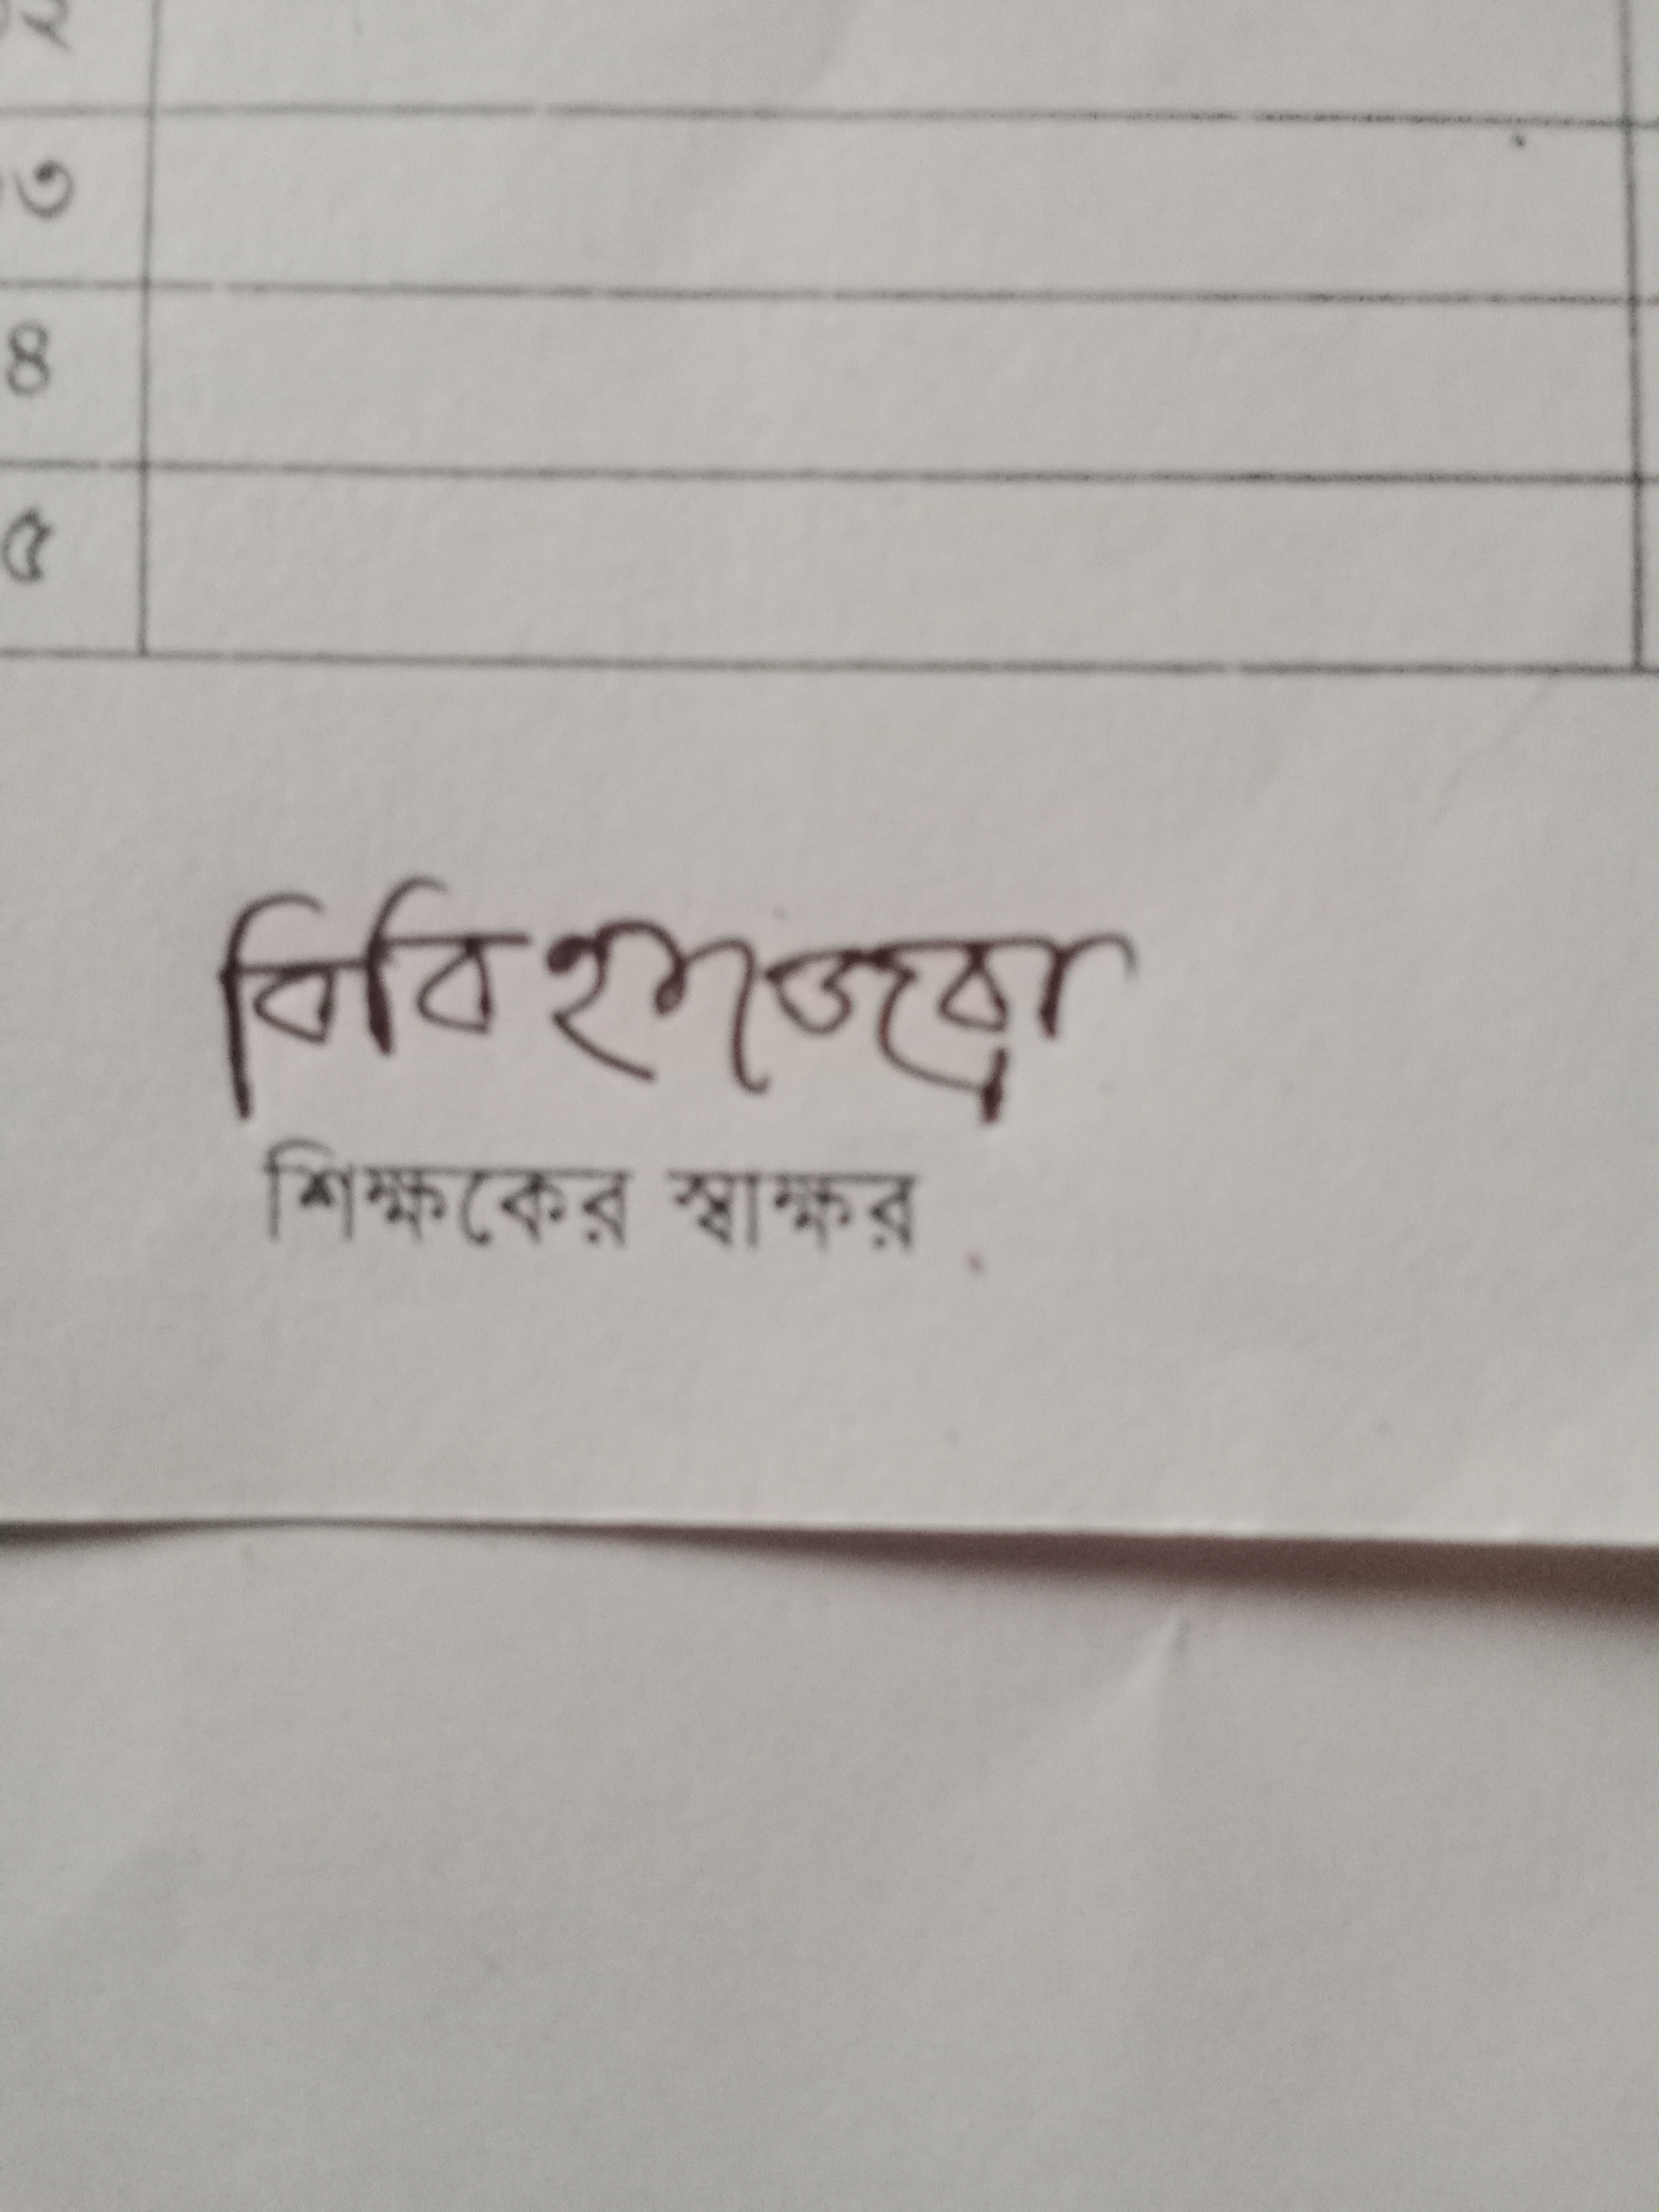 ৩
৪
৫
বিবি
শিক্ষকের স্বাক্ষর